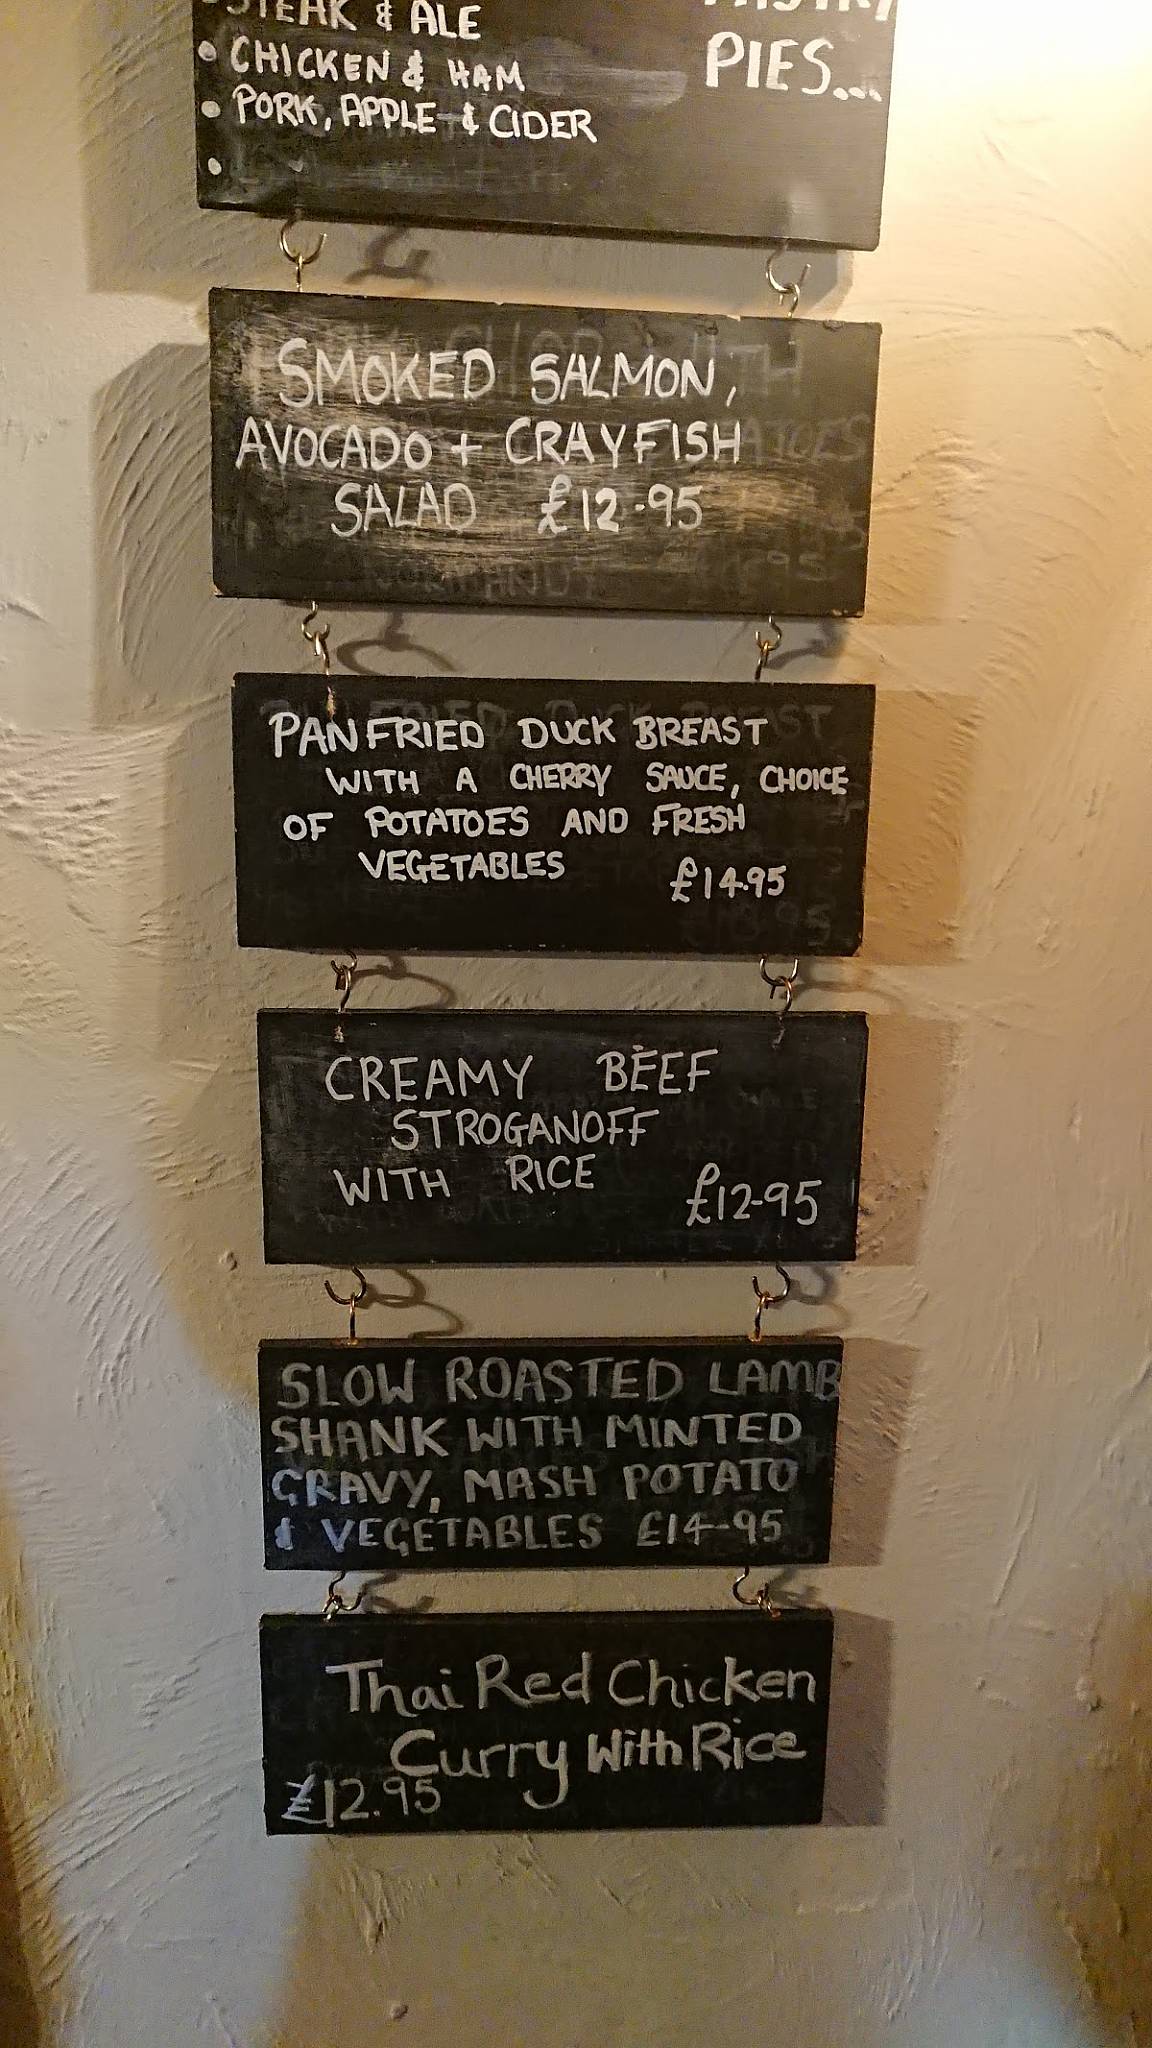 STEAK & ALE
PASTRY
• CHICKEN & HAM
PIES...
• PORK, APPLE & CIDER
•
SMOKED SALMON,
AVOCADO + CRAYFISH
SALAD £12.95
PAN FRIED DUCK BREAST
WITH A CHERRY SAUCE, CHOICE
OF POTATOES AND FRESH
VEGETABLES £14.95
CREAMY BEEF
STROGANOFF
WITH RICE
£12-95
SLOW ROASTED LAMB
SHANK WITH MINTED
GRAVY, MASH POTATO
& VEGETABLES £14-95
Thai Red Chicken
Curry With Rice
£12.95